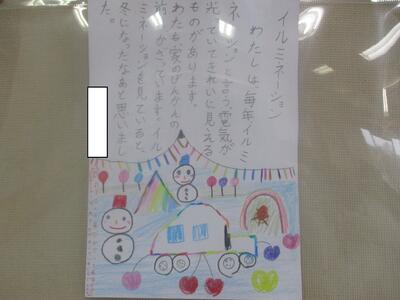 イルミネーション
わたしは、毎年、イルミ
ネーションと言う、電気が
光っていてきれいに見える
ものがあります。
わたも家のげんかんの
前に、かざっています。イル
ミネーションを見ていると、
冬になったなあと思いまし
た。